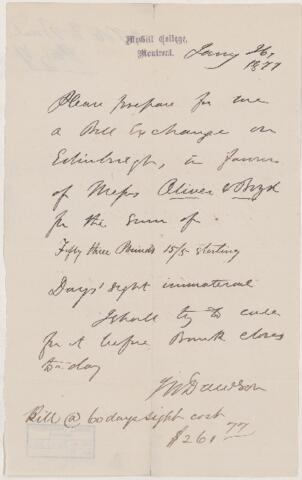 McGill College,
Montreal.
Jany 26,
1877
Please prepare for me
a Bill Exchange on
Edinburgh, in favour
of Messrs Oliver & Boyd
for the Sum of
Fifty three Pounds 15/5 sterling
Days' sight immaterial
I shall try to call
for it before Bank closes
to-day
JWDawson
Bill @ 60 days sight cost
$261 77